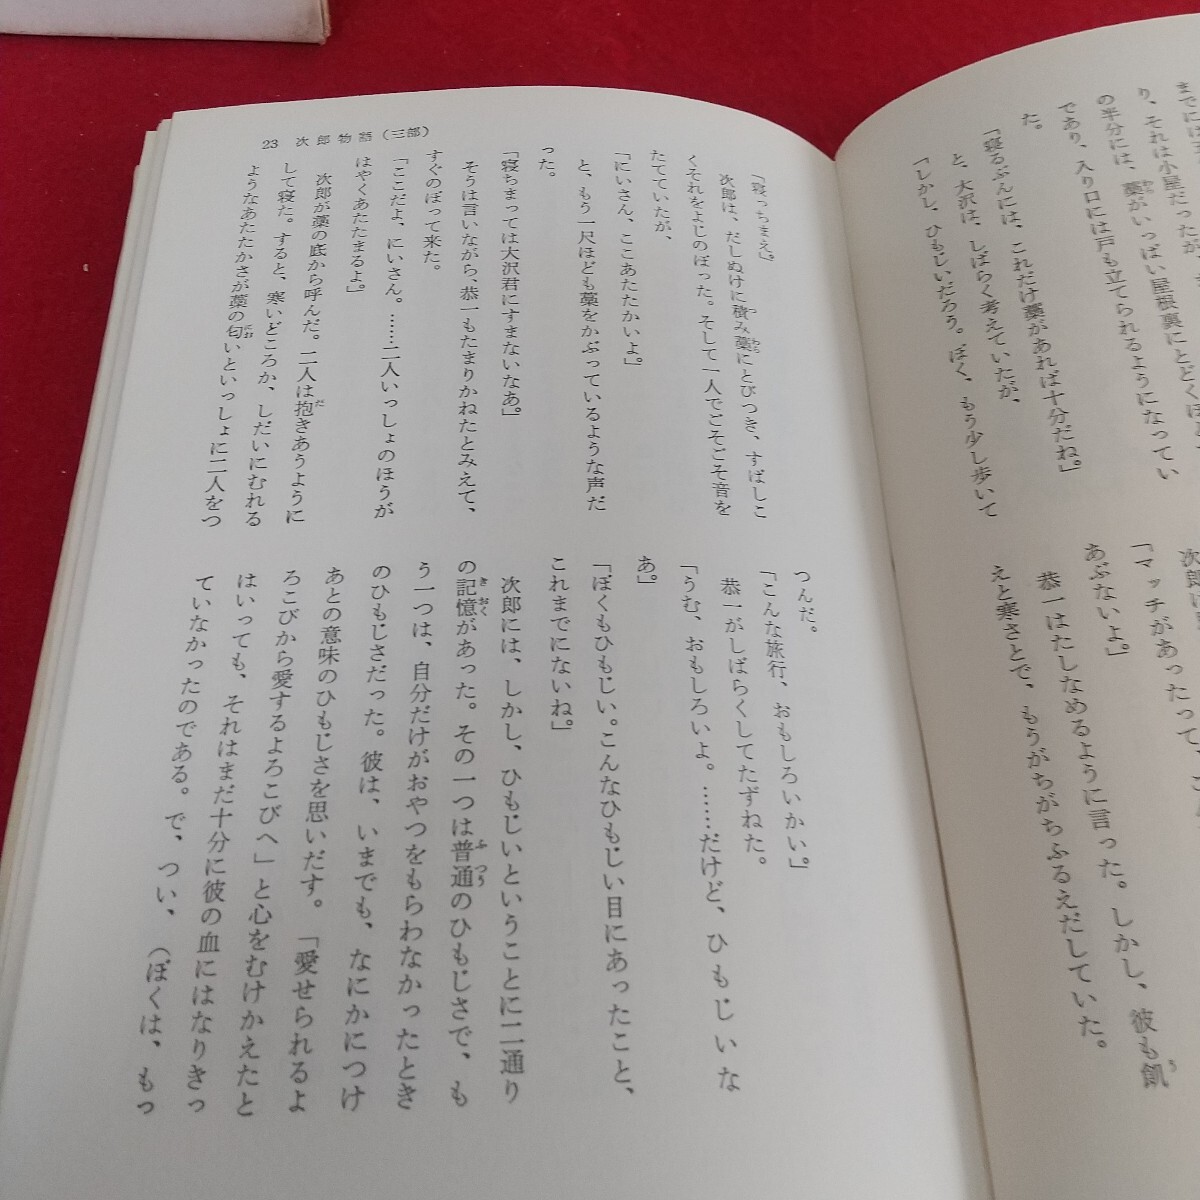 までには
り、それは小屋だったが、
の半分には、藁がいっぱい屋根裏にとどくほど
であり、入り口には戸も立てられるようになってい
た。
「寝るぶんには、これだけ藁があれば十分だね。」
と、大沢は、しばらく考えていたが、
「しかし、ひもじいだろう。ぼく、もう少し歩いて
次郎は
「マッチがあったって、
あぶないよ。」
恭一はたしなめるように言った。しかし、彼も飢
えと寒さとで、もうがちがちふるえだしていた。
23 次郎物語（三部）
「寝っちまえ。」
次郎は、だしぬけに積み藁にとびつき、すばしこ
くそれをよじのぼった。そして一人でごそごそ音を
たてていたが、
「にいさん、ここあたたかいよ。」
と、もう一尺ほども藁をかぶっているような声だ
った。
「寝ちまっては大沢君にすまないなあ。」
そうは言いながら、恭一もたまりかねたとみえて、
すぐのぼって来た。
「ここだよ、にいさん。……二人いっしょのほうが
はやくあたたまるよ。」
次郎が藁の底から呼んだ。二人は抱きあうように
して寝た。すると、寒いどころか、しだいにむれる
ようなあたたかさが藁の匂いといっしょに二人をつ
つんだ。
「こんな旅行、おもしろいかい。」
恭一がしばらくしてたずねた。
「うむ、おもしろいよ。……だけど、ひもじいな
あ。」
「ぼくもひもじい。こんなひもじい目にあったこと、
これまでにないね。」
次郎には、しかし、ひもじいということに二通り
の記憶があった。その一つは普通のひもじさで、も
う一つは、自分だけがおやつをもらわなかったとき
のひもじさだった。彼は、いまでも、なにかにつけ
あとの意味のひもじさを思いだす。「愛せられるよ
ろこびから愛するよろこびへ」と心をむけかえたと
はいっても、それはまだ十分に彼の血にはなりきっ
ていなかったのである。で、つい、（ぼくは、もっ